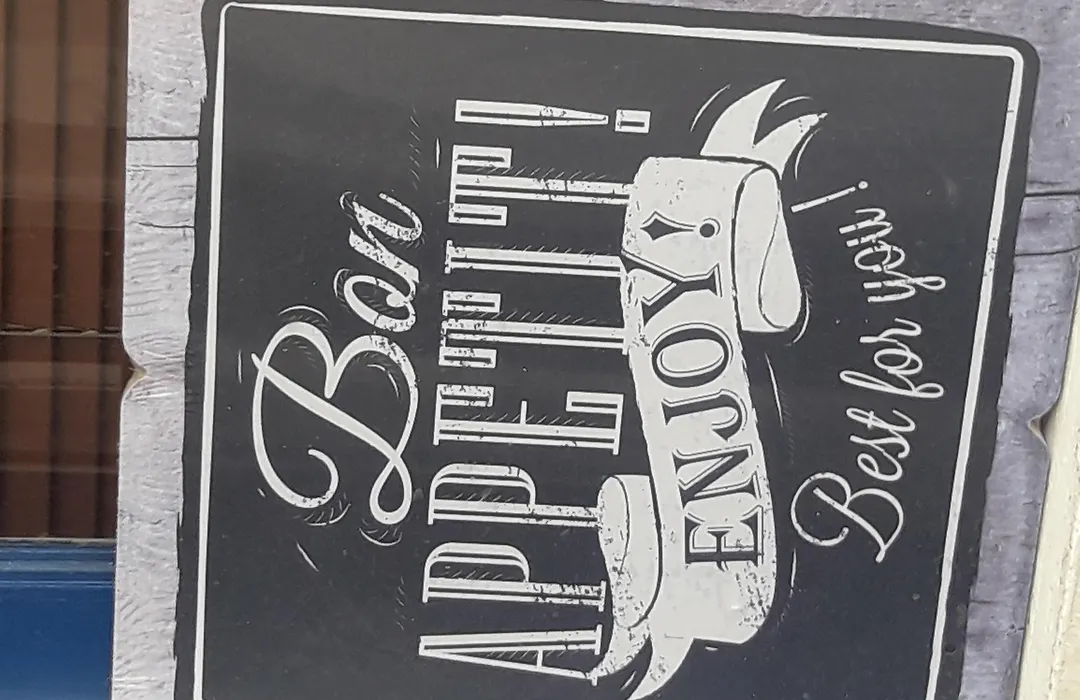 Bon
APPETIT!
ENJOY!
Best for you!